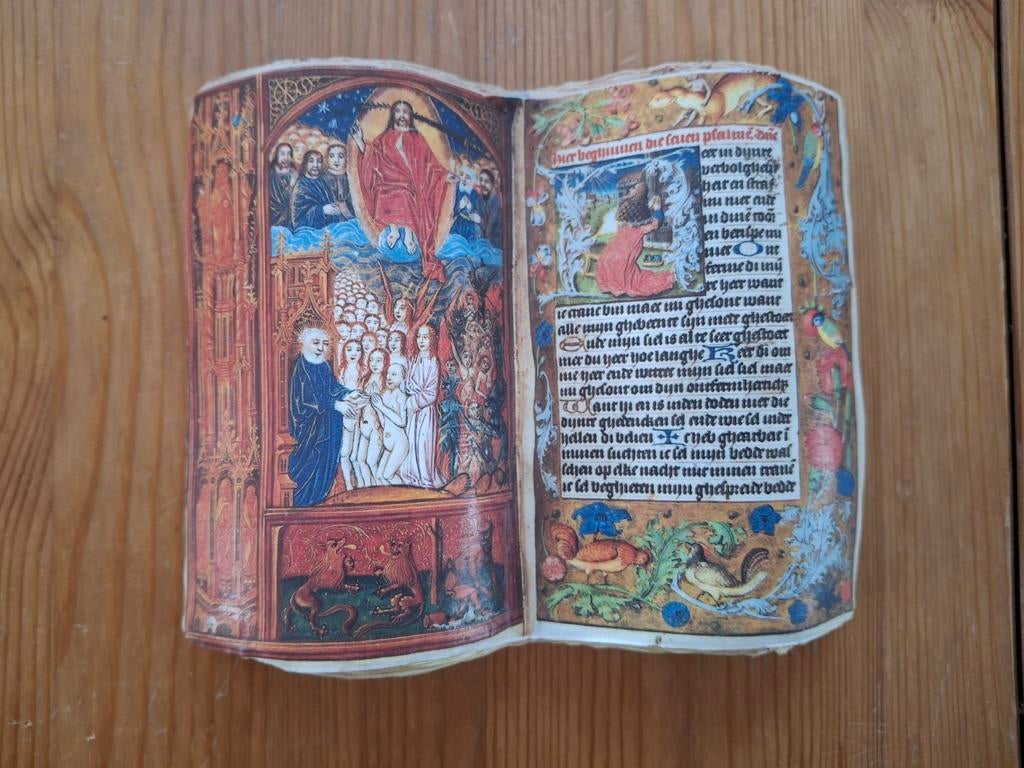 hier beghinnen die seuen psalmē
eer in dijnre
verbolghen
heit en straf
mi niet ende
in dinē toor
en berispe mi
niet Ont
ferme di mijn
re heer want
ic cranc bin maec mi ghesont want
alle mijn ghebeente sijn mede ghestoert
Ende mijn siel is alte seer ghestoert
mer du heer hoe langhe Keer di om
me heer ende mijn siel maec
mi ghesont om dijn ontfermhertich
Want hi en is inden doden niet die
dijnre ghedencken sel ende wie sel inder
hellen di belien Ic heb ghearbeit ī
minen suchten ic sel mijn bedde was
schen op elke nacht mit minen tranē
ic sel beghieten mijn ghespreide bedde